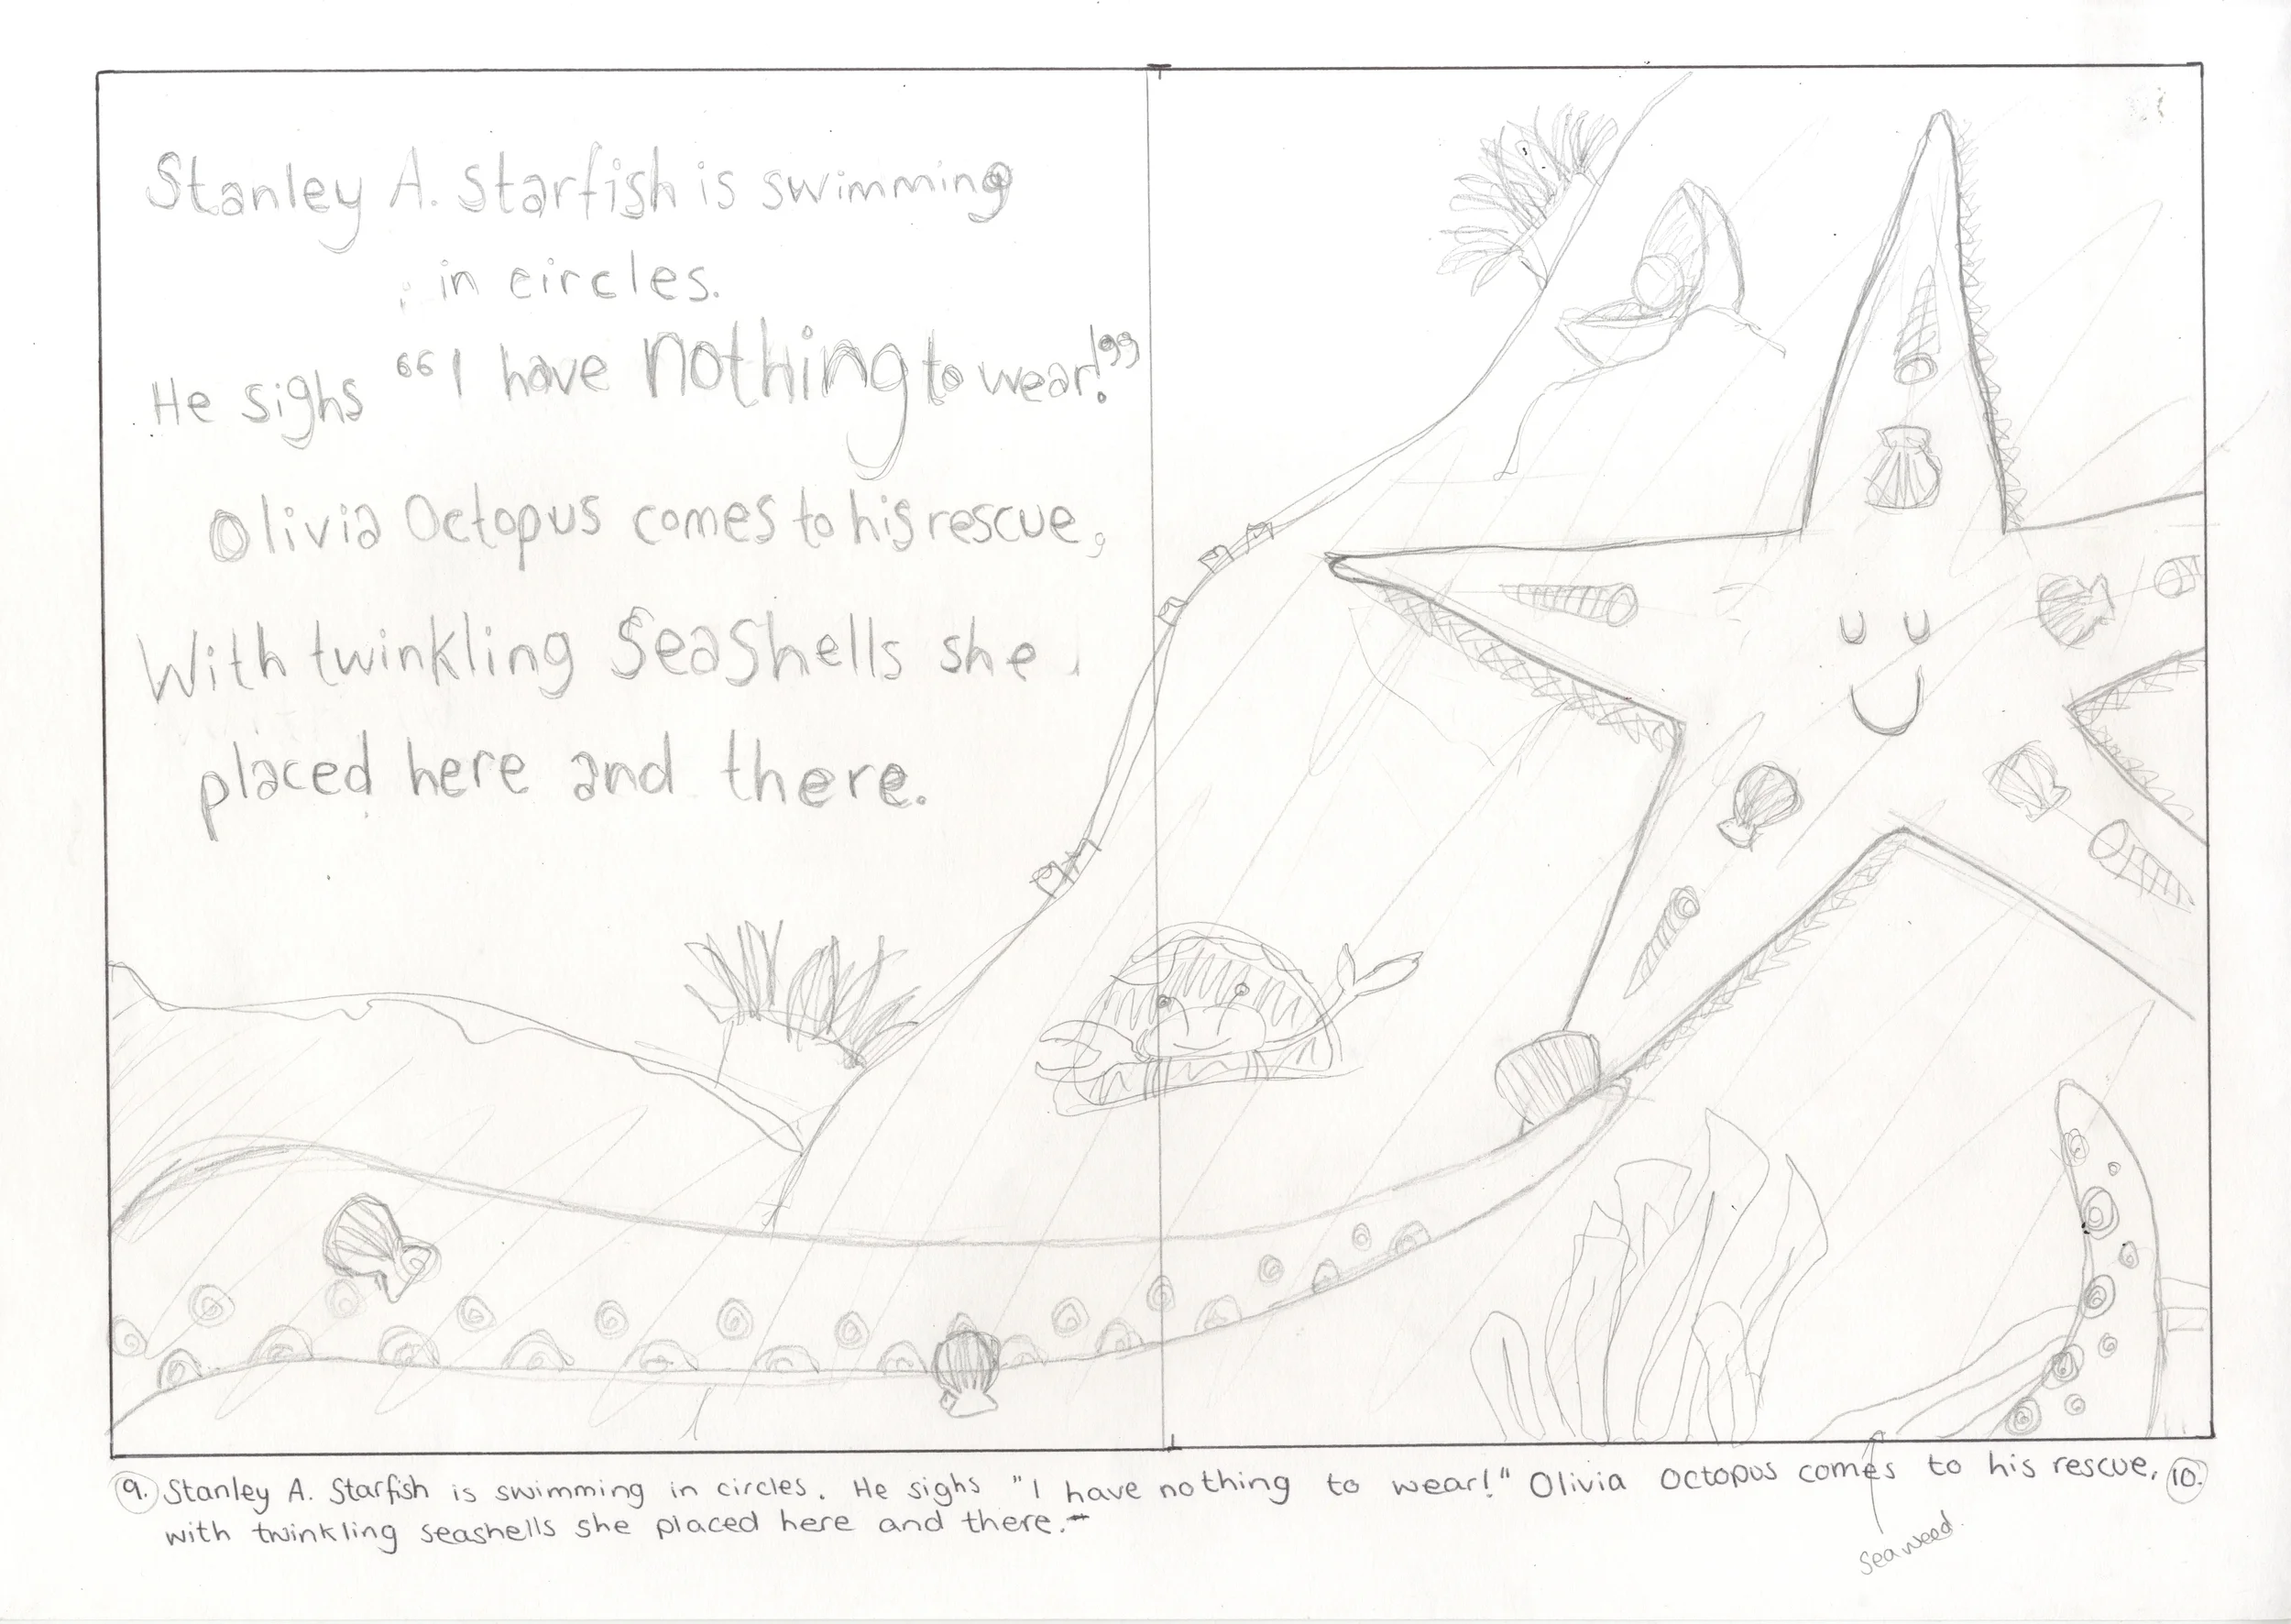 Stanley A. Starfish is swimming
in circles.
He sighs "I have nothing to wear!"
Olivia Octopus comes to his rescue,
With twinkling Seashells she
placed here and there.
9. Stanley A. Starfish is swimming in circles. He sighs "I have nothing to wear!" Olivia Octopus comes to his rescue, 10.
with twinkling seashells she placed here and there.
seaweed.